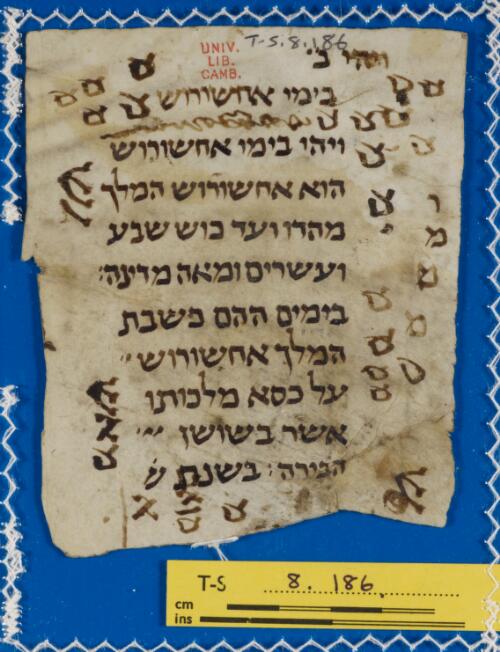 T-S.8.186
UNIV.
LIB.
CAMB.
ויהי ב׳
בימי אחשורוש
ויהי בימי אחשורוש
הוא אחשורוש המלך
מהדו ועד כוש שבע
ועשרים ומאה מדינה׃
בימים ההם כשבת
המלך אחשורוש
על כסא מלכותו
אשר בשושן
הבירה׃ בשנת ש
T-S 8. 186
cm
ins